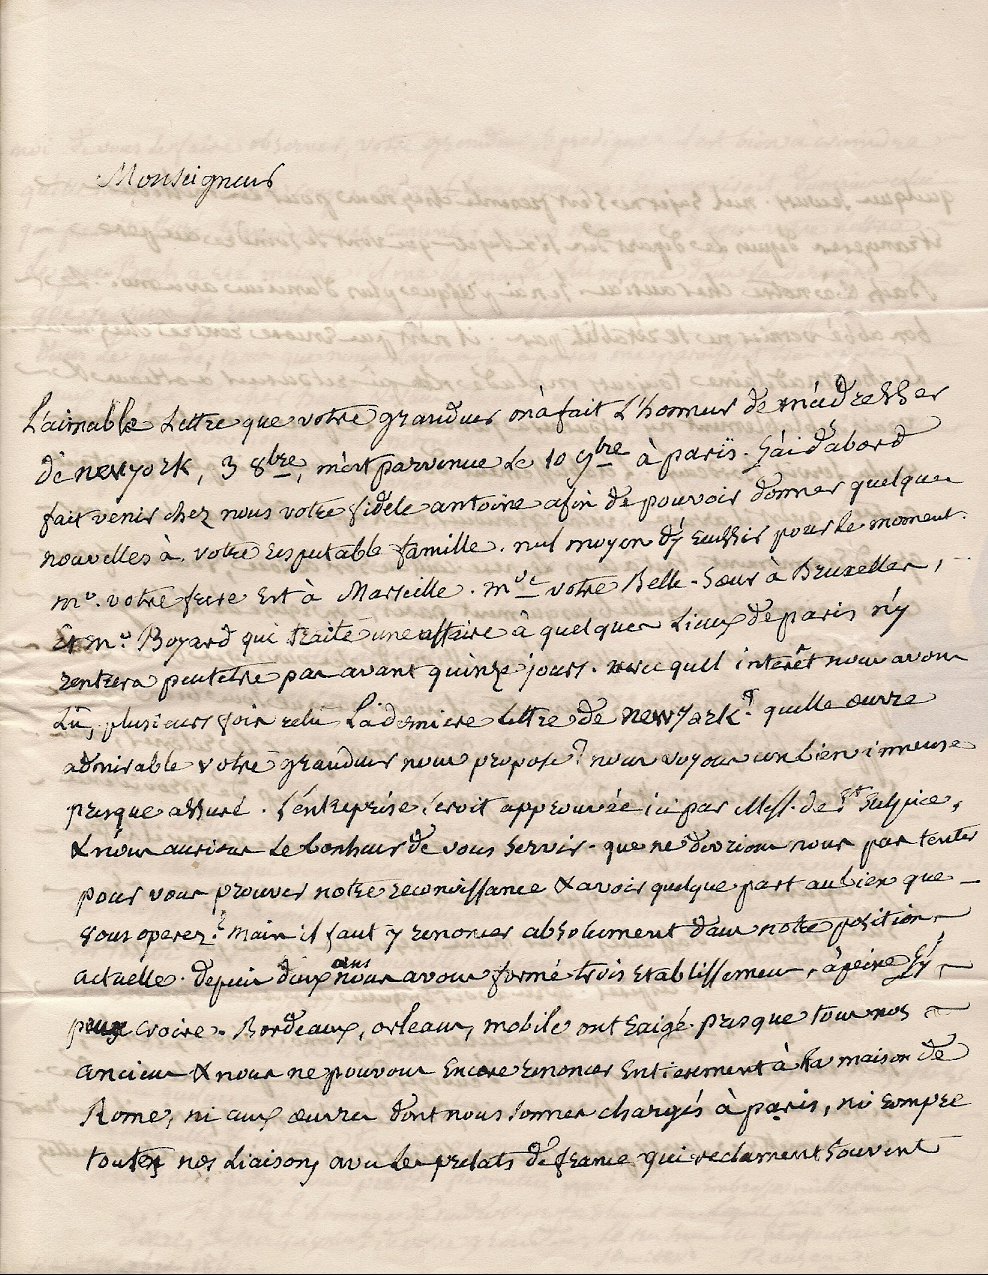 Monseigneur
L'aimable Lettre que votre grandeur m'a fait L'honneur de m'adresser
de newyork, 3 8bre, m'est parvenue Le 10 9bre à paris. J'ai d'abord
fait venir chez nous votre fidéle antoine afin de pouvoir donner quelques
nouvelles à votre respectable famille. nul moyen d'y reussir pour le moment.
mr. votre frere Est à Marseille. mde votre Belle-Sœur à Bruxelles,
Et mr. Boyard qui traite une affaire à quelques Lieux de paris n'y
rentrera peutetre pas avant quinze jours. avec quel interêt nous avons
Lû, plusieurs fois relu La derniere Lettre de newyork? quelle œuvre
admirable votre grandeur nous propose? nous voyons un bien immense
presque assuré. L'entreprise seroit approuvée ici par Mess. de St Sulpice,
& nous aurions Le bonheur de vous servir. que ne devrions nous pas tenter
pour vous prouver notre reconnissance & avoir quelque part au bien que
vous operez? mais il faut y renoncer absolument dans notre position
actuelle. depuis deux ans nous avons formé trois Etablissemens, à peine Si j'y
peux croire. Bordeaux, orleans, mobile ont Exigé presque tous nos
anciens & nous ne pouvons Encore renoncer Entierement à La maison de
Rome, ni aux œuvres dont nous sommes chargés à paris, ni rompre
toutes nos Liaisons avec Les prelats de france qui reclament Souvent